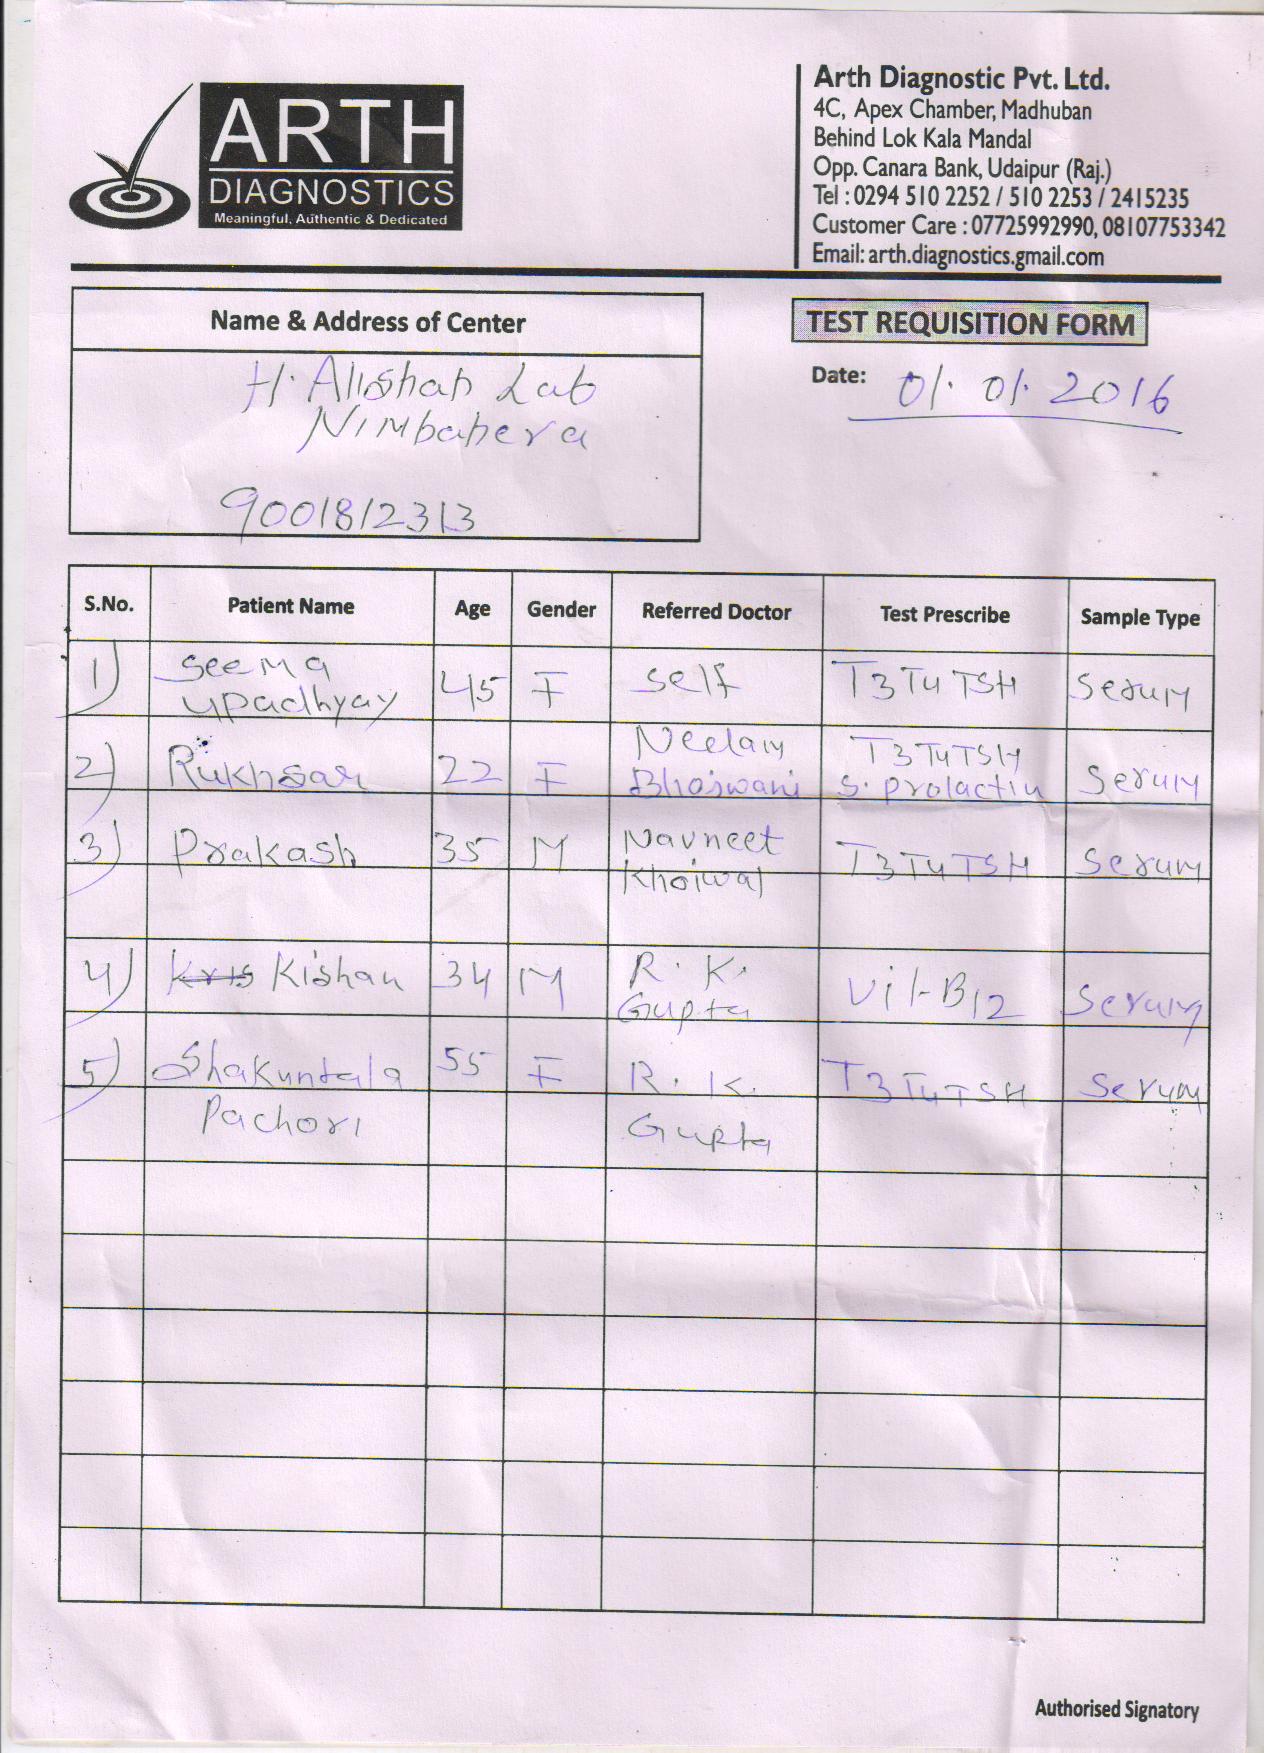 ARTH
DIAGNOSTICS
Meaningful, Authentic & Dedicated
Arth Diagnostic Pvt. Ltd.
4C, Apex Chamber, Madhuban
Behind Lok Kala Mandal
Opp. Canara Bank, Udaipur (Raj.)
Tel : 0294 510 2252 / 510 2253 / 2415235
Customer Care : 07725992990, 08107753342
Email: arth.diagnostics.gmail.com
Name & Address of Center
H. Alishah Lab
Nimbahera
9001812313
TEST REQUISITION FORM
Date: 01.01.2016
S.No. Patient Name Age Gender Referred Doctor Test Prescribe Sample Type
1) Seema Upadhyay 45 F Self T3 T4 TSH Serum
2) Rukhsar 22 F Neelam Bhojwani T3 T4 TSH S. Prolactin Serum
3) Prakash 35 M Navneet Khoiwal T3 T4 TSH Serum
4) Kishan 34 M R. K. Gupta Vit-B12 Serum
5) Shakuntala Pachori 55 F R. K. Gupta T3 T4 TSH Serum
Authorised Signatory